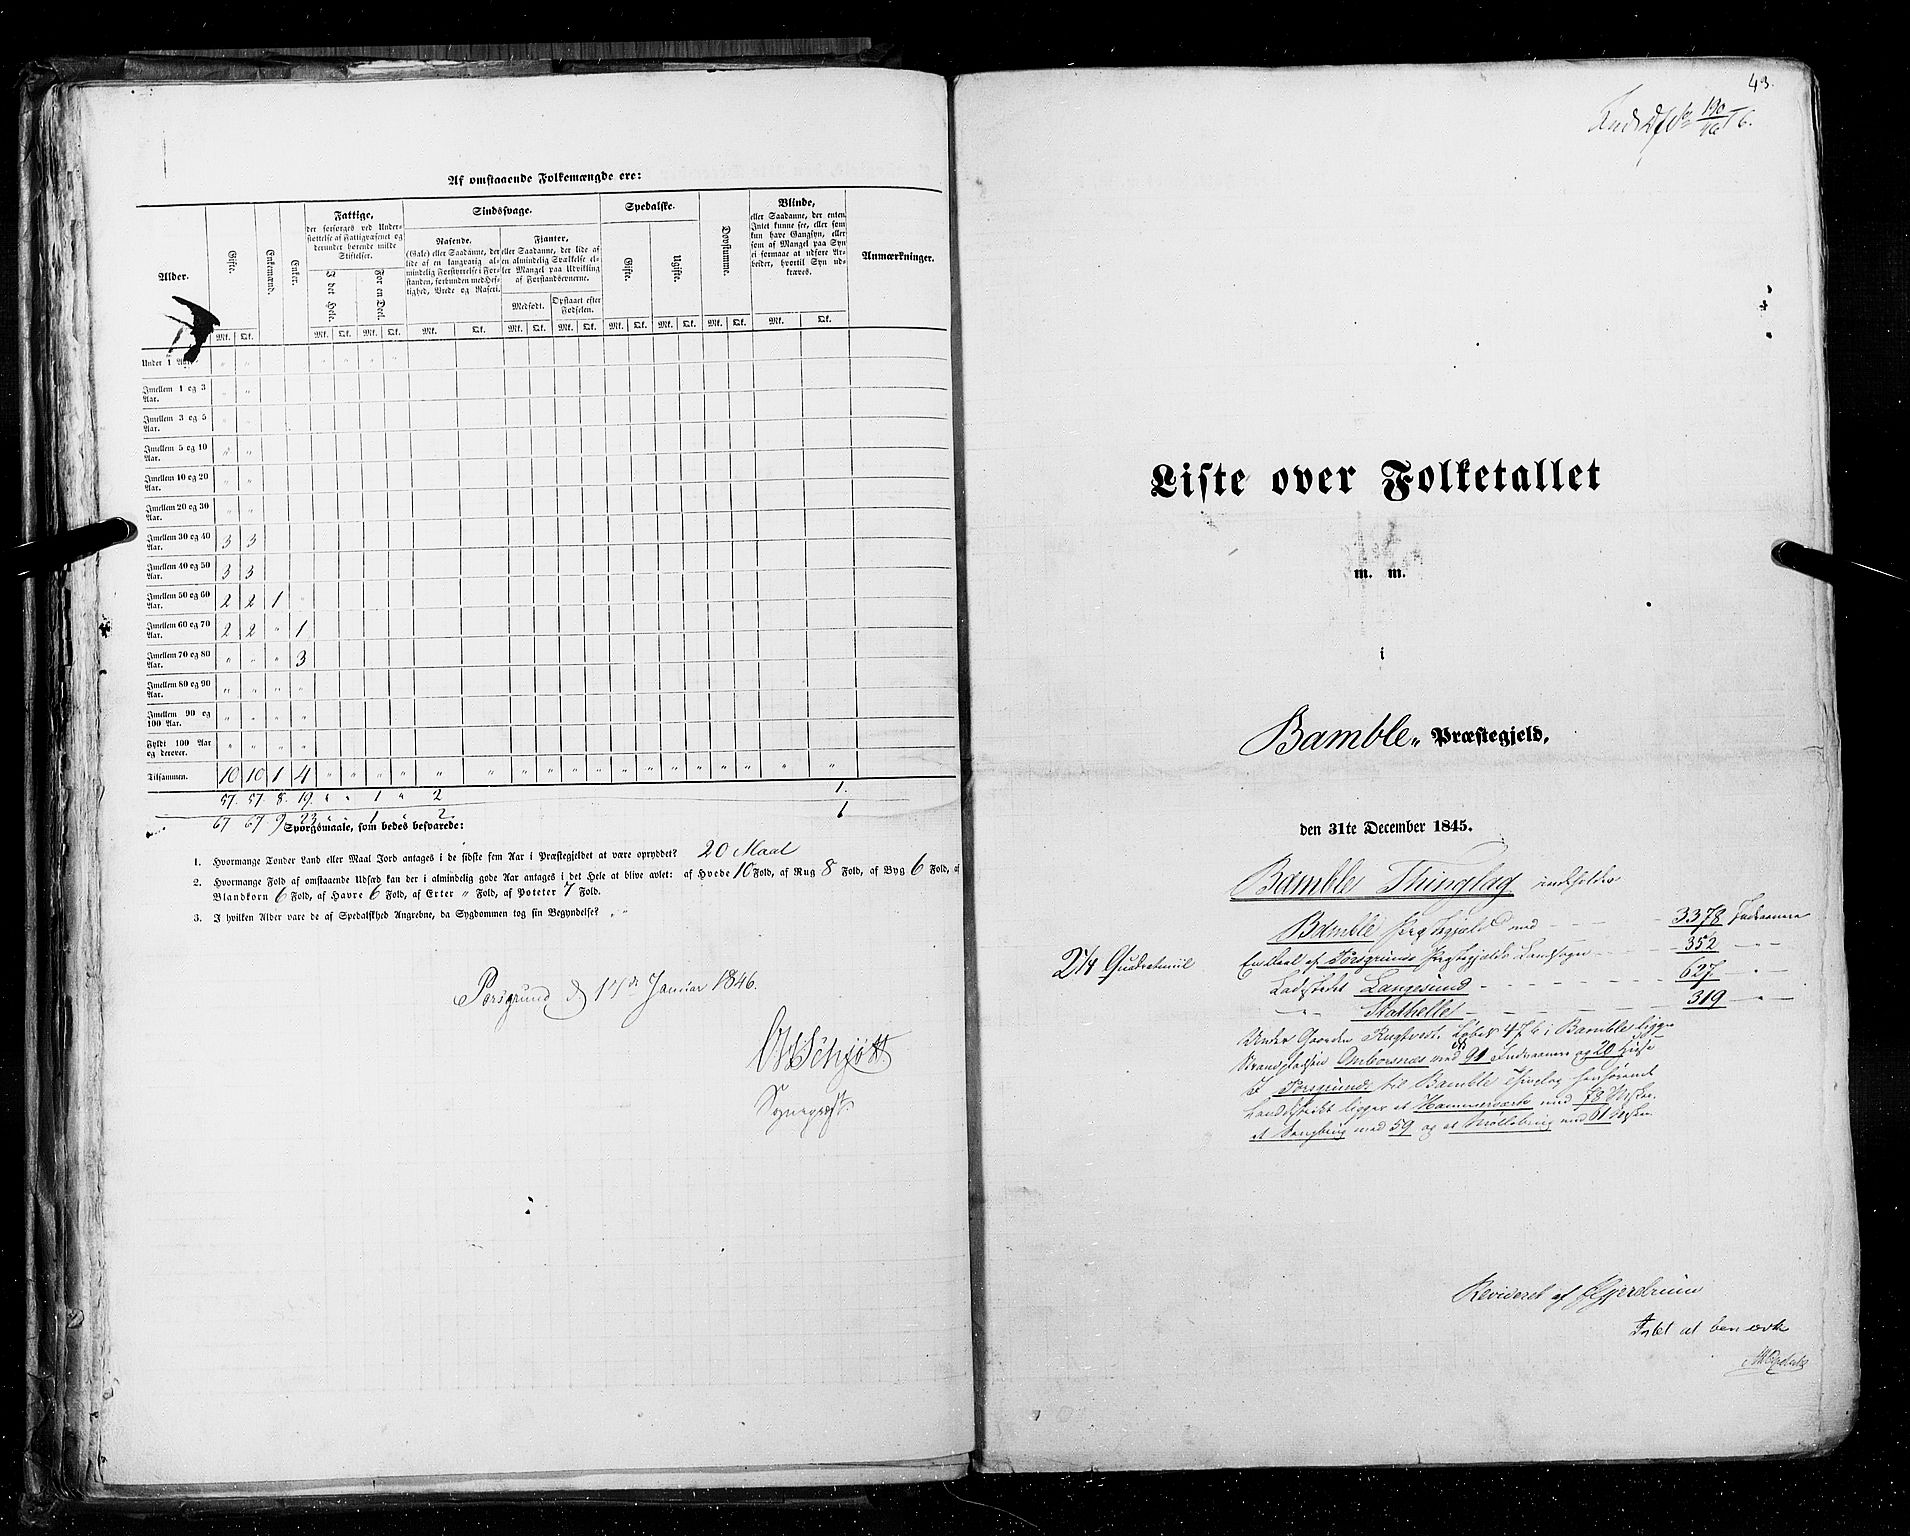 Af omstaaende Folkemængde ere:
Alder.
Gifte.
Enkemænd.
Enker.
Fattige,
der forsørges ved Under-
støttelse af Fattigvæsenet og
derunder hørende milde
Stiftelser.
I det Hele.
For en Deel.
Sindssvage.
Rasende.
(Gale) eller Saadanne, der
lide af en langvarig al-
mindelig Forstyrrelse i For-
standen, forbunden med Hef-
tighed, Vrede og Raseri.
Fjanter,
eller Saadanne, der lide af
en almindelig Svækkelse el-
ler Mangel paa Udvikling
af Forstandsevnerne.
Medfødt.
Opstaaet efter
Fødselen.
Spedalske.
Gifte.
Ugifte.
Døvstumme.
Blinde,
eller Saadanne, der enten
Intet kunne see, eller som
kun have Gangsyn, eller
som af Mangel paa Syn
ei formaae at udføre Ar-
beider, hvortil Syn ud-
kræves.
Anmærkninger.
Mk. Qk. Mk. Qk. Mk. Qk. Mk. Qk. Mk. Qk. Mk. Qk. Mk. Qk. Mk. Qk. Mk. Qk. Mk. Qk.
Under 1 Aar. " " " " " "
Imellem 1 og 3 Aar. " "
Imellem 3 og 5 Aar. " "
Imellem 5 og 10 Aar. " "
Imellem 10 og 20 Aar. " "
Imellem 20 og 30 Aar. " "
Imellem 30 og 40 Aar. 3 3
Imellem 40 og 50 Aar. 3 3
Imellem 50 og 60 Aar. 2 2 1 "
Imellem 60 og 70 Aar. 2 2 " 1
Imellem 70 og 80 Aar. " " " 3
Imellem 80 og 90 Aar. " " " "
Imellem 90 og 100 Aar. " " " "
Fyldt 100 Aar og derover. " " " "
Tilsammen. 10 10 1 4 " " " " " " " " " " " " " " " " " "
57. 57. 8. 19. " " 1 " 2 1.
67 67 9 23 1 2 1
Spørgsmaale, som bedes besvarede:
1. Hvormange Tønder Land eller Maal Jord antages i de sidste fem Aar i Præstegjeldet at være opryddet? 20 Maal
2. Hvormange Fold af omstaaende Udsæd kan der i almindelig gode Aar antages i det Hele at blive avlet: af Hvede 10 Fold, af Rug 8 Fold, af Byg 6 Fold, af
Blandkorn 6 Fold, af Havre 6 Fold, af Erter " Fold, af Poteter 7 Fold.
3. I hvilken Alder vare de af Spedalskhed Angrebne, da Sygdommen tog sin Begyndelse? " "
Porsgrund d 14de Januar 1846.
Schjött
Sognepræst.
43.
Liste over Folketallet
m. m.
i
Bamble Præstegjeld,
den 31te December 1845.
Bamble Thinglag indeholder
Bamble Præstegjæld med 3378 Indvaanere
2 1/4 Quadratmiil
En Deel af Porsgrunds Præstegjælds Landsogn 352 " "
Ladestedet Langesund 627 "
" Stathelle 319 " "
Under Gaarden Rugtvedt, Løbe N 476 i Bamble ligger
Strandpladsen Omborsnæs med 91 Indvaanere og 20 Huse
I Porsgrunds til Bamble Thinglag henhørende
Landdistrikt ligger et Hammerværk med 78 Mesker.
et Sagbrug med 59 og et Møllebrug med 61 Mesker.
Revideret af Gjerdrum
Intet at bemærke